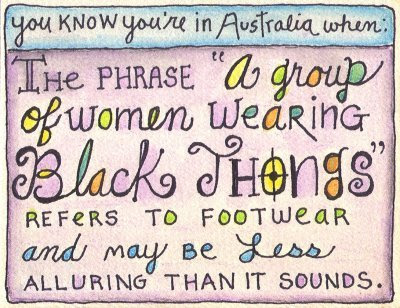 you KNOW you're in Australia when:
THE PHRASE "a group
of women WEARING
Black THONgs"
REFERS TO FOOTWEAR
and may BE Less
ALLURING THAN IT SOUNDS.